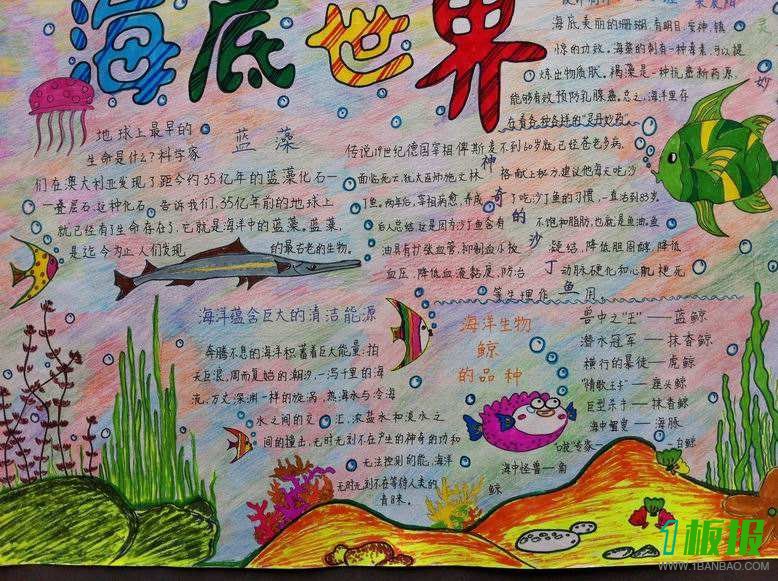 海底世界
海底美丽的珊瑚,有明目,安神,镇
惊的功效。海藻的刺有一种毒素,可以提
炼出物质肽。褐藻是一种抗癌新药源,
能够有效预防乳腺癌。总之,海洋里存
在着各种各样的“灵丹妙药”。
妙
地球上最早的
生命是什么?科学家
蓝藻
们在澳大利亚发现了距今约35亿年的蓝藻化石一
一叠层石,这种化石告诉我们,35亿年前的地球上
就已经有了生命存在了,它就是海洋中的蓝藻。蓝藻,
是迄今为止人们发现的最古老的生物。
神奇的沙丁鱼
传说19世纪德国宰相俾斯麦不到60岁就已经苍老多病,
格献上秘方建议他每天吃沙
丁鱼。两年后,宰相病愈,养成了吃沙丁鱼的习惯,一直活到83岁。
后人总结,这是因为沙丁鱼含有不饱和脂肪,也就是鱼油。鱼
油具有扩张血管,抑制血小板凝结,降低胆固醇,降低
血压,降低血液黏度,防治动脉硬化和心肌梗死
等生理作用。
海洋蕴含巨大的清洁能源
奔腾不息的海洋积蓄着巨大能量:拍
天巨浪,周而复始的潮汐,一泻千里的海
流,万丈深渊一样的旋涡,热海水与冷海
水之间的交汇,浓盐水和淡水之
间的撞击,无时无刻不在产生的神奇的功和
无法控制的能,海洋
无时无刻不在等待人类的
青睐。
海洋生物
鲸
的品种
兽中之“王”——蓝鲸
潜水冠军——抹香鲸
横行的暴徒——虎鲸
“情歌王子”——座头鲸
巨型杀手——抹香鲸
海豚
白鲸
海中怪兽—角
鲸
1板报
WWW.1BANBAO.COM